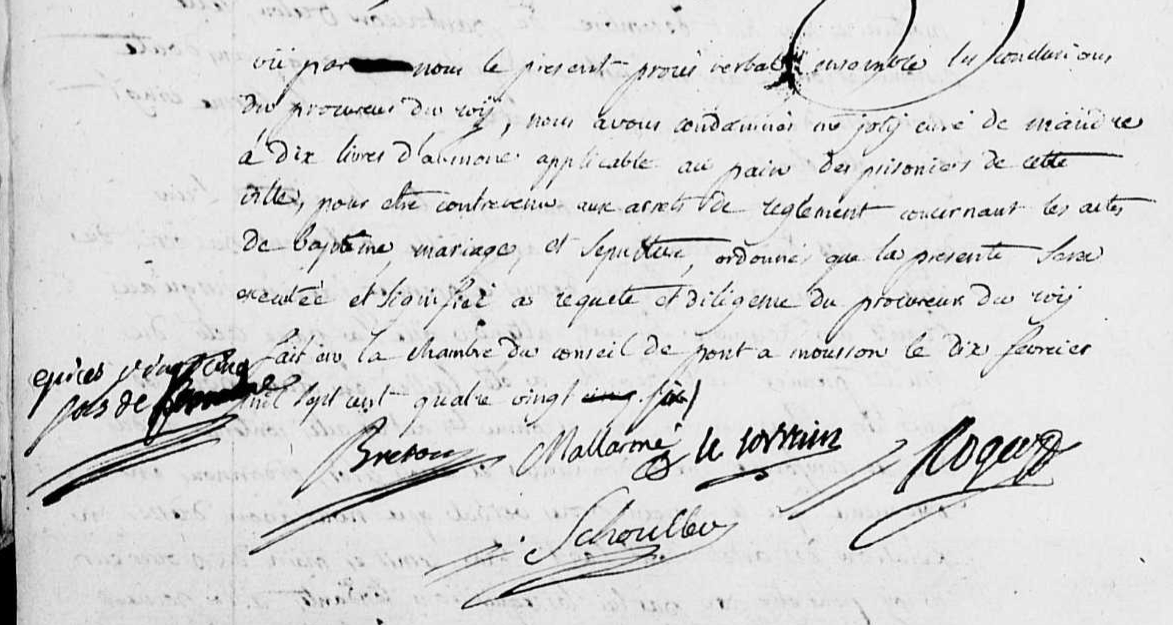 vû par nous le present procès verbal ensemble les conclusions
du procureur du roÿ, nous avons condamnés me jolÿ curé de maidre
à dix livres d'aumone applicable au pain des prisoniers de cette
ville, pour etre contrevenu aux arrets de reglement concernant les actes
de baptême mariage, et sepulture, ordonné que la presente sera
executée et signifiée a requete et diligence du procureur du roÿ
fait en la chambre du conseil de pont a mousson le dix fevrier
mil sept cent quatre vingt cinq six
epices vingt cinq
sols de
Breton Mallarmé le lorrain Roguer
Schouller